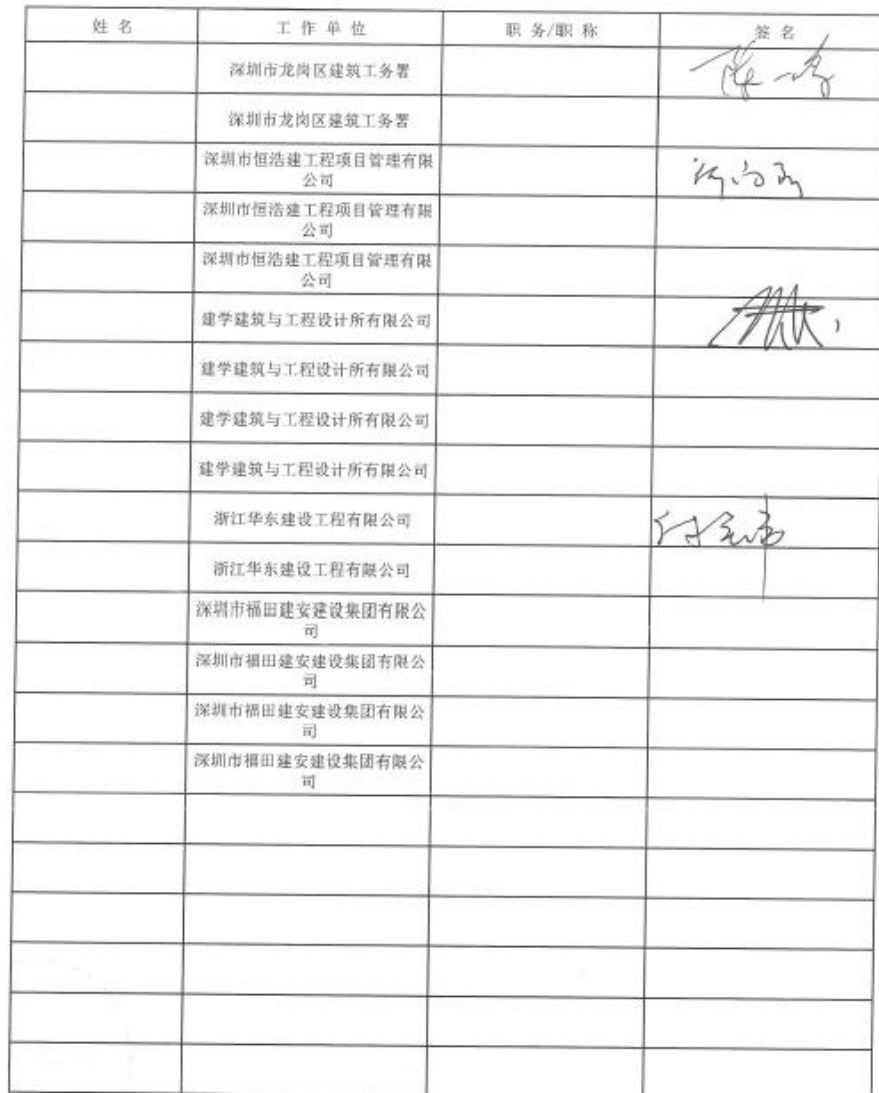 姓 名 工 作 单 位 职 务/职 称 签 名
深圳市龙岗区建筑工务署
深圳市龙岗区建筑工务署
深圳市恒浩建工程项目管理有限
公司
深圳市恒浩建工程项目管理有限
公司
深圳市恒浩建工程项目管理有限
公司
建学建筑与工程设计所有限公司
建学建筑与工程设计所有限公司
建学建筑与工程设计所有限公司
建学建筑与工程设计所有限公司
浙江华东建设工程有限公司
浙江华东建设工程有限公司
深圳市福田建安建设集团有限公
司
深圳市福田建安建设集团有限公
司
深圳市福田建安建设集团有限公
司
深圳市福田建安建设集团有限公
司